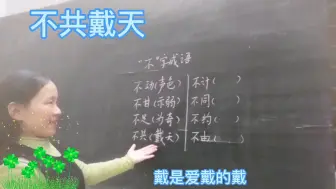 不共戴天
“不”字成语
不动(声色) 不计( )
不甘(示弱) 不同( )
不足(为奇) 不约( )
不共(戴天) 不由( )
戴是爱戴的戴